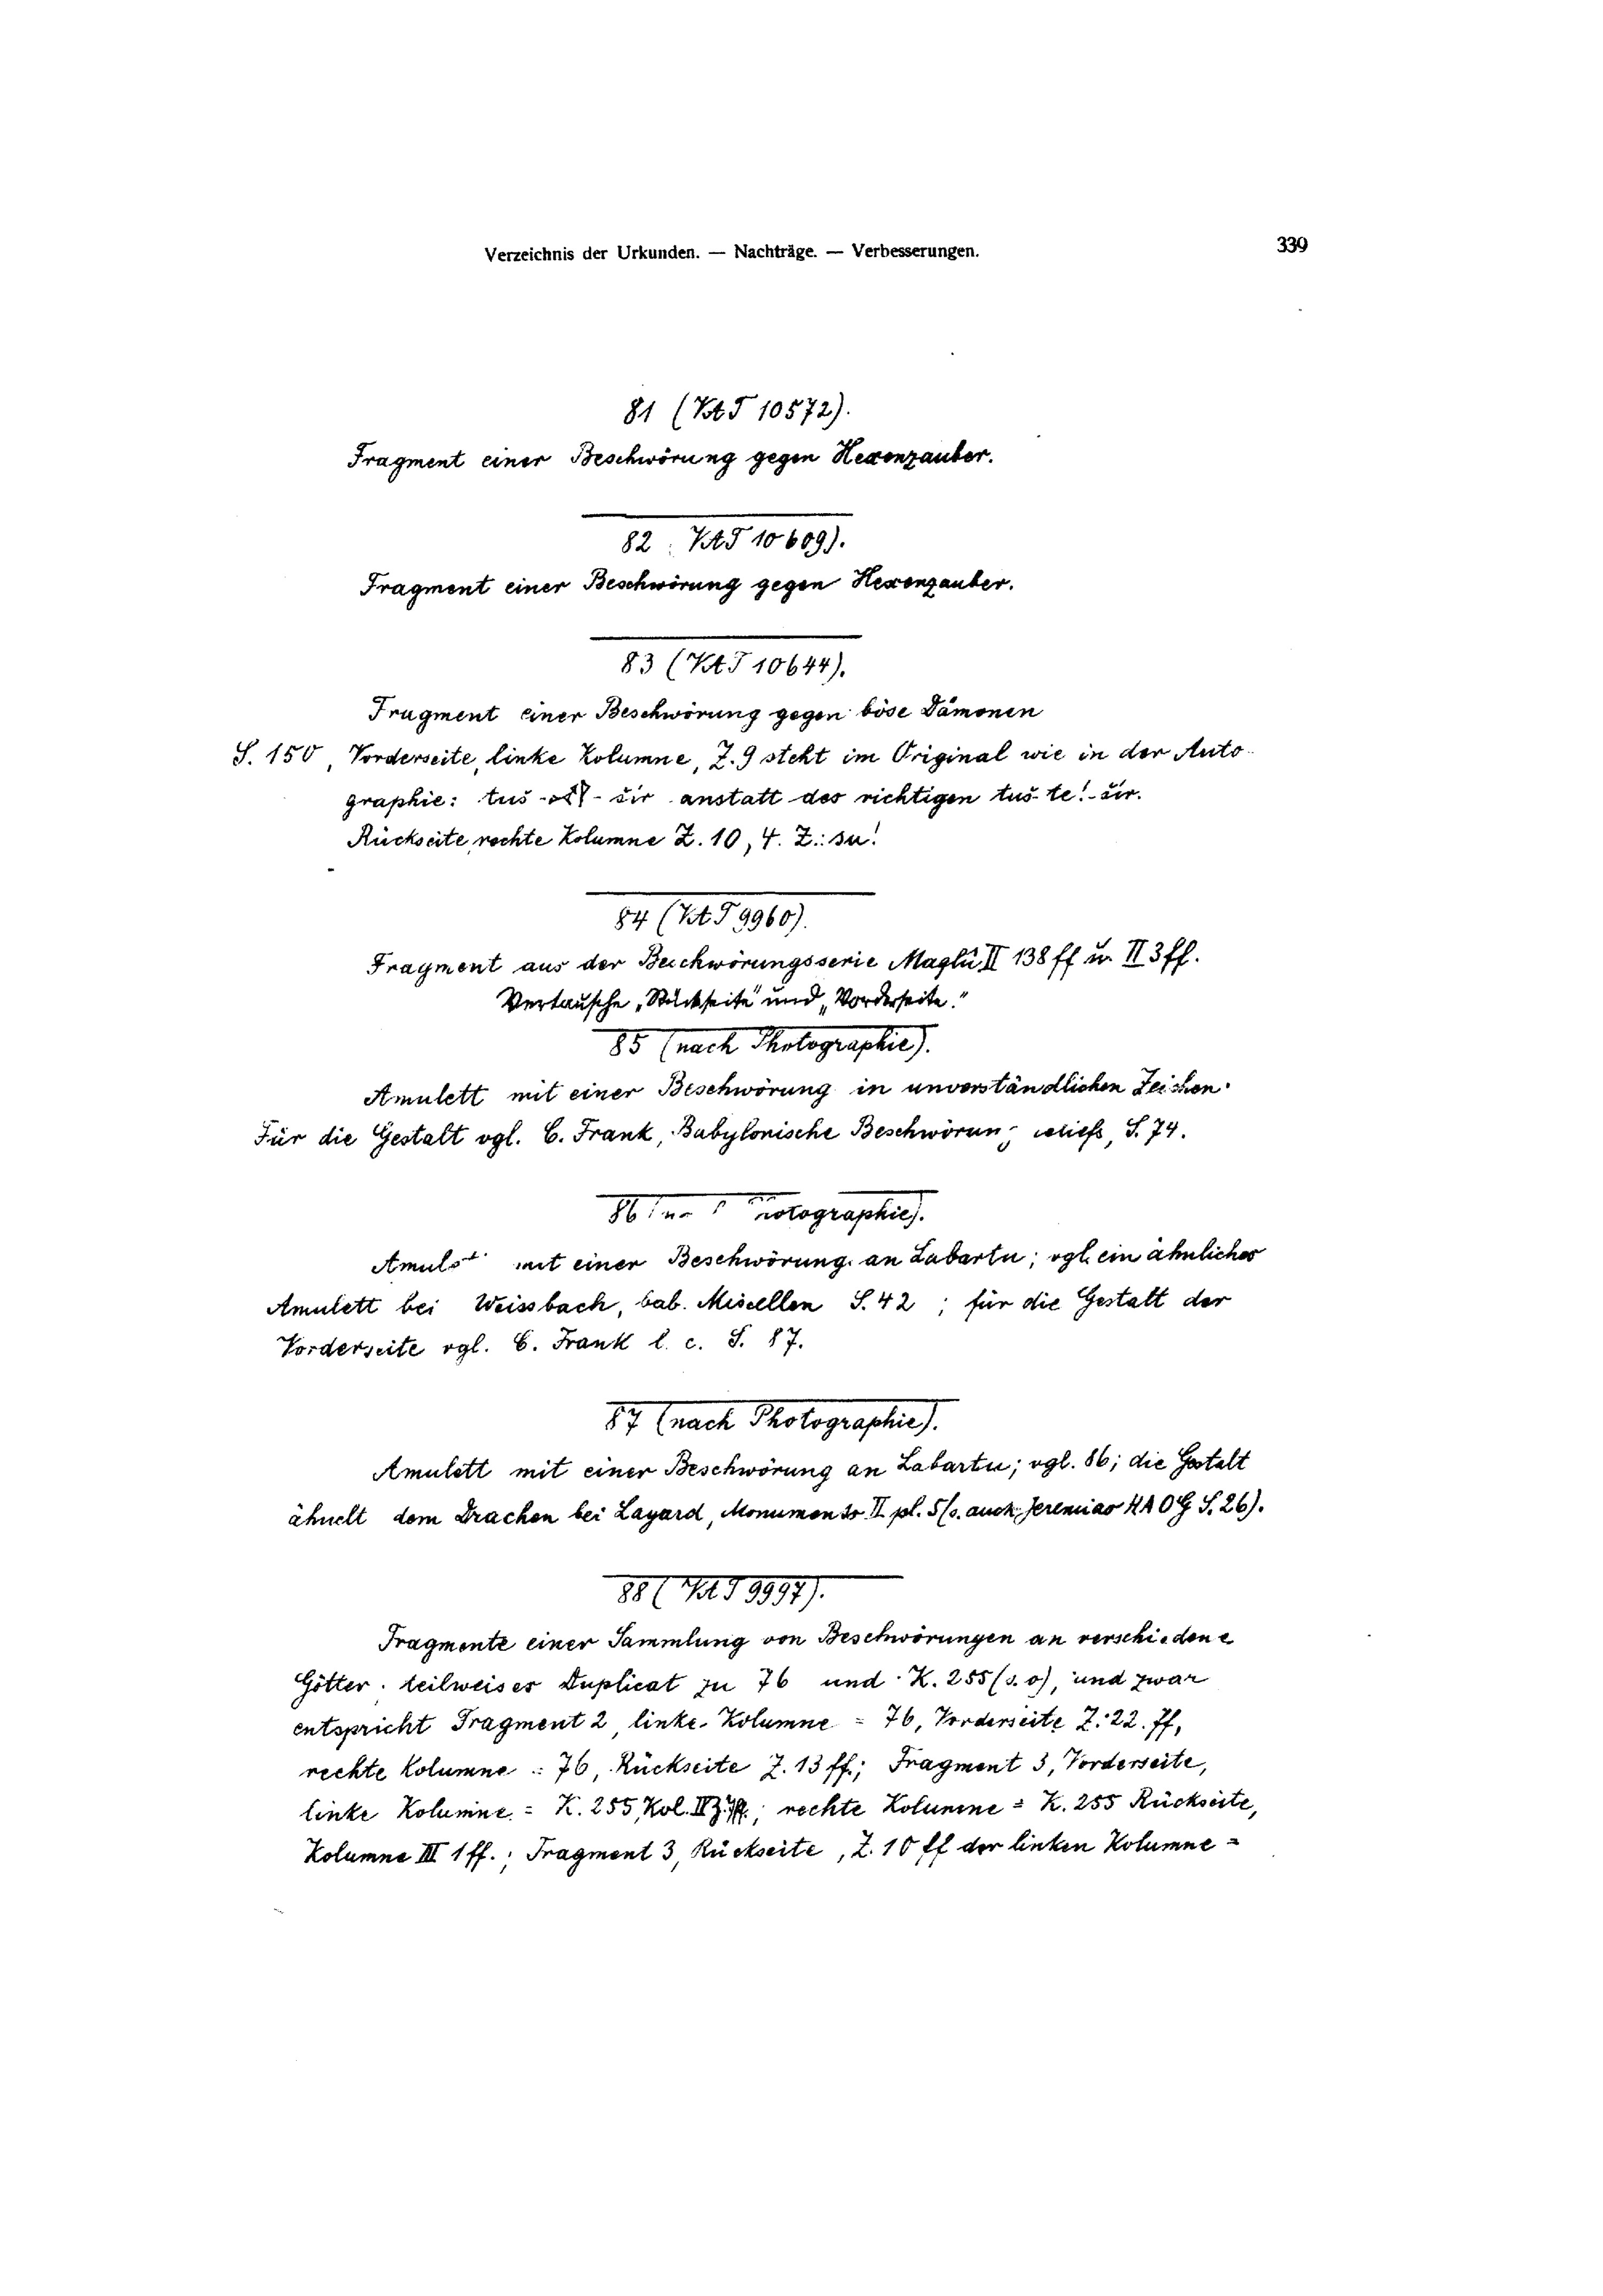 Verzeichnis der Urkunden. — Nachträge. — Verbesserungen. 339
81 (VAT 10572).
Fragment einer Beschwörung gegen Hexenzauber.
82 VAT 10609).
Fragment einer Beschwörung gegen Hexenzauber.
83 (VAT 10644).
Fragment einer Beschwörung gegen böse Dämonen
S. 150, Vorderseite, linke Kolumne, Z. 9 steht im Original wie in der Auto-
graphie: tuš- -šir anstatt des richtigen tuš-te!-šir.
Rückseite, rechte Kolumne Z. 10, 4. Z.: su!
84 (VAT 9960).
Fragment aus der Beschwörungsserie Maqlû II 138 ff u. II 3 ff.
Vertausche „Rückseite" und „Vorderseite."
85 (nach Photographie).
Amulett mit einer Beschwörung in unverständlichen Zeichen.
Für die Gestalt vgl. C. Frank, Babylonische S. 74.
86
Amulett mit einer Beschwörung an Labartu; vgl. ein ähnliches
Amulett bei Weissbach, bab. Miscellen S. 42; für die Gestalt der
Vorderseite vgl. C. Frank l. c. S. 87.
87 (nach Photographie).
Amulett mit einer Beschwörung an Labartu; vgl. 86; die Gestalt
ähnelt dem Drachen bei Layard, Monuments II pl. 5 (s. auch Jeremias HAOG S. 26).
88 (VAT 9997).
Fragmente einer Sammlung von Beschwörungen an verschiedene
Götter. teilweises Duplicat zu 76 und K. 255 (s. o), und zwar
entspricht Fragment 2, linke Kolumne = 76, Vorderseite Z. 22. ff,
rechte Kolumne = 76, Rückseite Z. 13 ff.; Fragment 3, Vorderseite,
linke Kolumne = K. 255, Kol. II ; rechte Kolumne = K. 255 Rückseite,
Kolumne III 1 ff.; Fragment 3, Rückseite, Z. 10 ff der linken Kolumne =